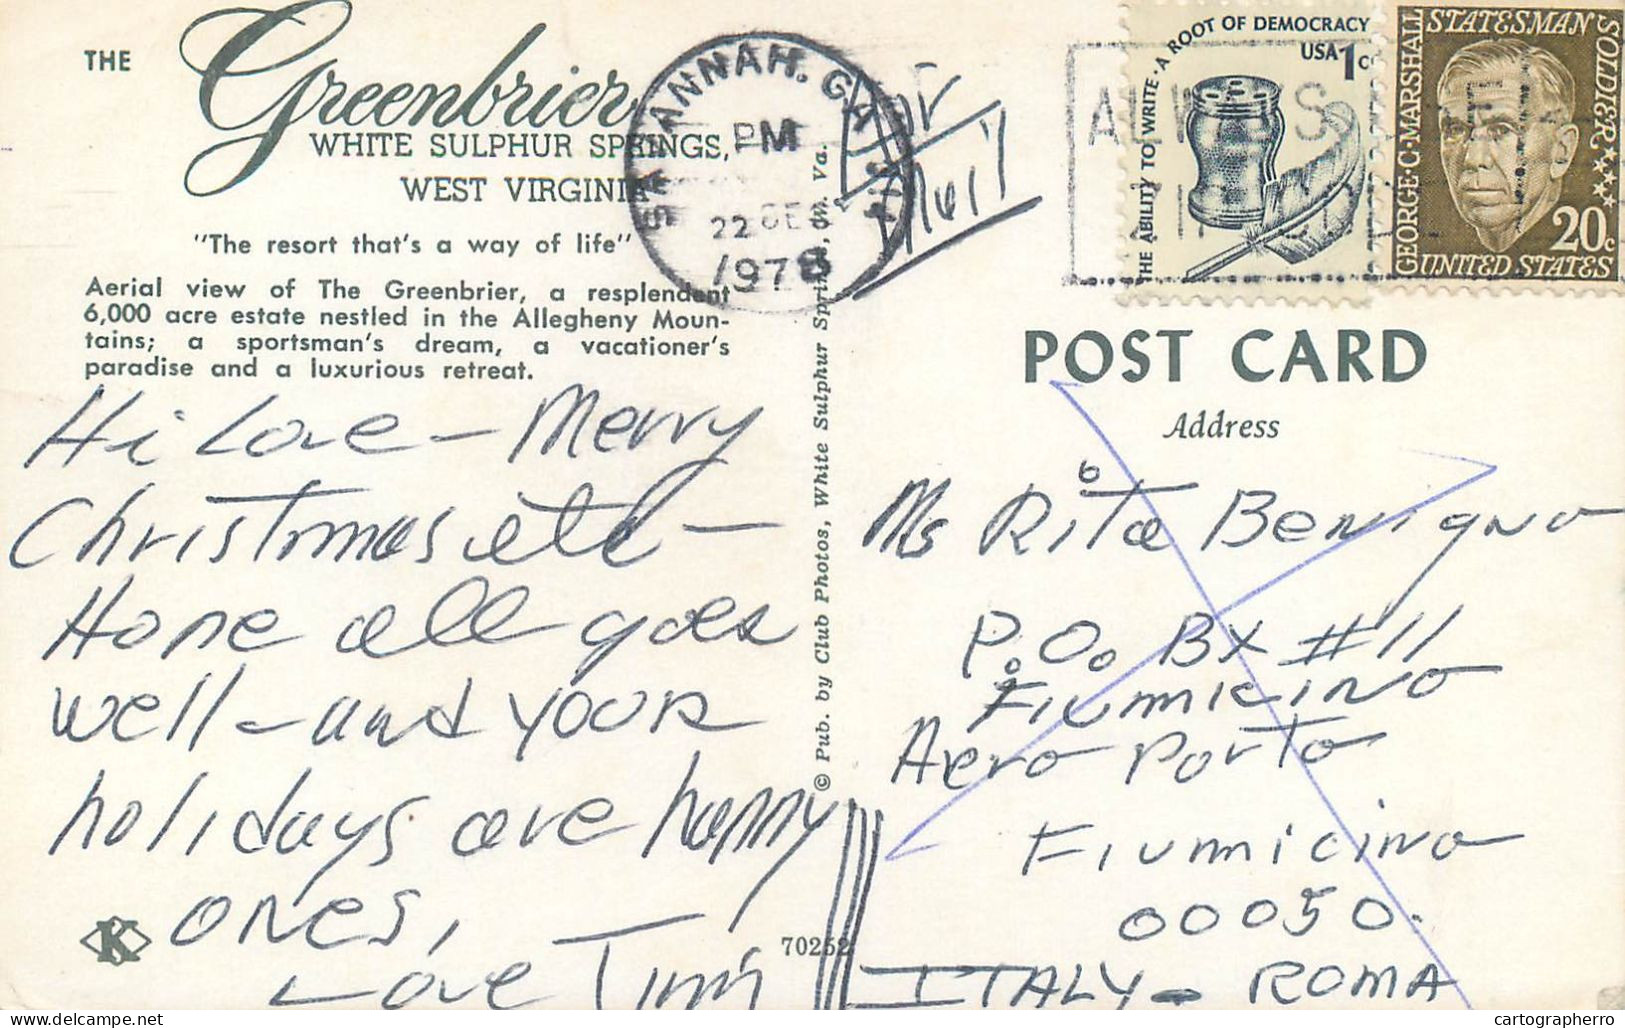 THE Greenbrier
WHITE SULPHUR SPRINGS,
WEST VIRGINIA
"The resort that's a way of life"
Aerial view of The Greenbrier, a resplendent
6,000 acre estate nestled in the Allegheny Moun-
tains; a sportsman's dream, a vacationer's
paradise and a luxurious retreat.
Hi Love - Merry
Christmas etc -
Hope all goes
well - and your
holidays are happy
ones,
Love Tim
K
70252
© Pub. by Club Photos, White Sulphur Springs, W. Va.
SAVANNAH, GA
PM
22 DEC
1978
Air
Mail
A ROOT OF DEMOCRACY
THE ABILITY TO WRITE
USA 1c
STATESMAN SOLDIER
GEORGE C. MARSHALL
20c
UNITED STATES
ALWAYS USE
ZIP CODE
POST CARD
Address
Ms Rita Benigno
P.O. BX #11
Fiumicino
Aero Porto
Fiumicino
00050.
ITALY - ROMA
cartographerro